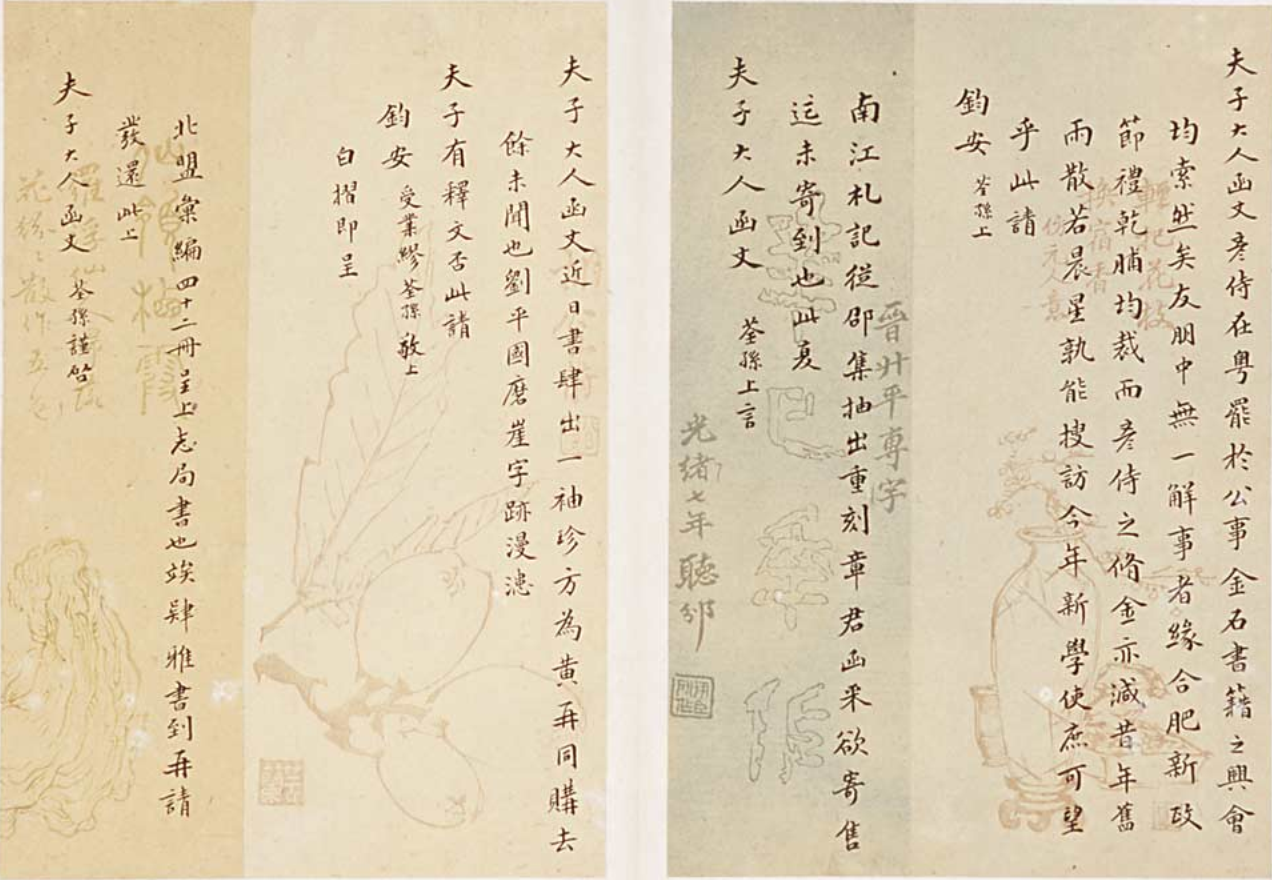 夫子大人函丈彥侍在粵罷於公事金石書籍之興會
均索然矣友朋中無一解事者緣合肥新政
節禮乾脯均裁而彥侍之脩金亦減昔年舊
雨散若晨星孰能搜訪今年新學使庶可望
乎此請
鈞安 荃孫上
輕把花枝
換宿香
仿元人意
南江札記從邵集抽出重刻章君函來欲寄售
迄未寄到也此夏
夫子大人函丈 荃孫上言
晉升平專字
光緒七年聽邠
夫子大人函丈近日書肆出一袖珍方為黃再同購去
餘未聞也劉平國磨崖字跡漫漶
夫子有釋文否此請
鈞安 受業繆荃孫敬上
白摺即呈
北盟彙編四十二冊呈上志局書也竢肆雅書到再請
發還此上
夫子大人函丈 荃孫謹啓